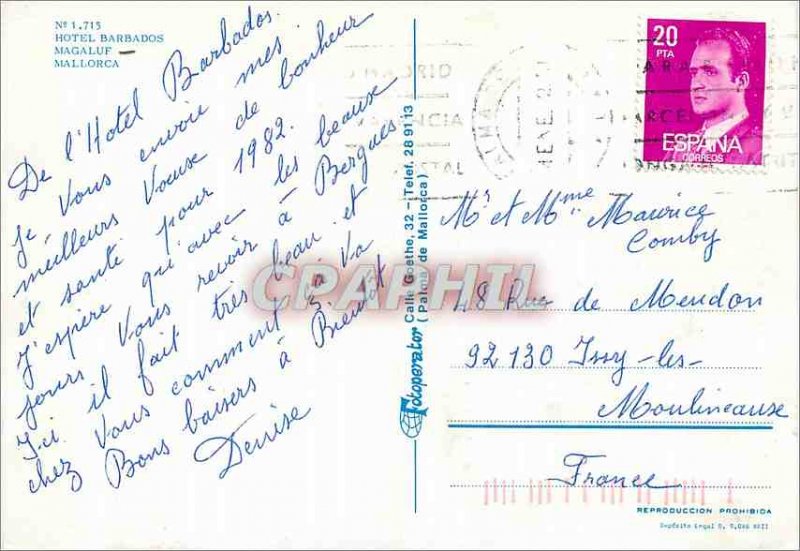 Nº 1.715
HOTEL BARBADOS
MAGALUF
MALLORCA
De l'Hotel Barbados.
Je, vous envoie mes
meilleurs Voeuse de bonheur
et santé pour 1982.
J'espère qu'avec les beause
jours Vous revoir à Bergues
Ici il fait très beau et
chez Vous comment ça Va
Bons baisers à Bientôt
Denise
Fotoperator Calle Goethe, 32 – Telef. 28 91 13
(Palma de Mallorca)
20
PTA
ESPAÑA
CORREOS
Mr et Mme Maurice
Comby
48 Rue de Meudon
92130 Issy-les-
Moulineause
France
REPRODUCCION PROHIBIDA
CPAPHIL